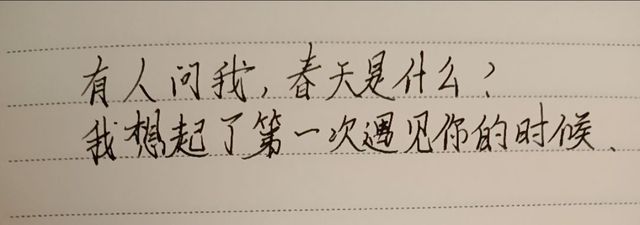 有人问我，春天是什么？
我想起了第一次遇见你的时候、